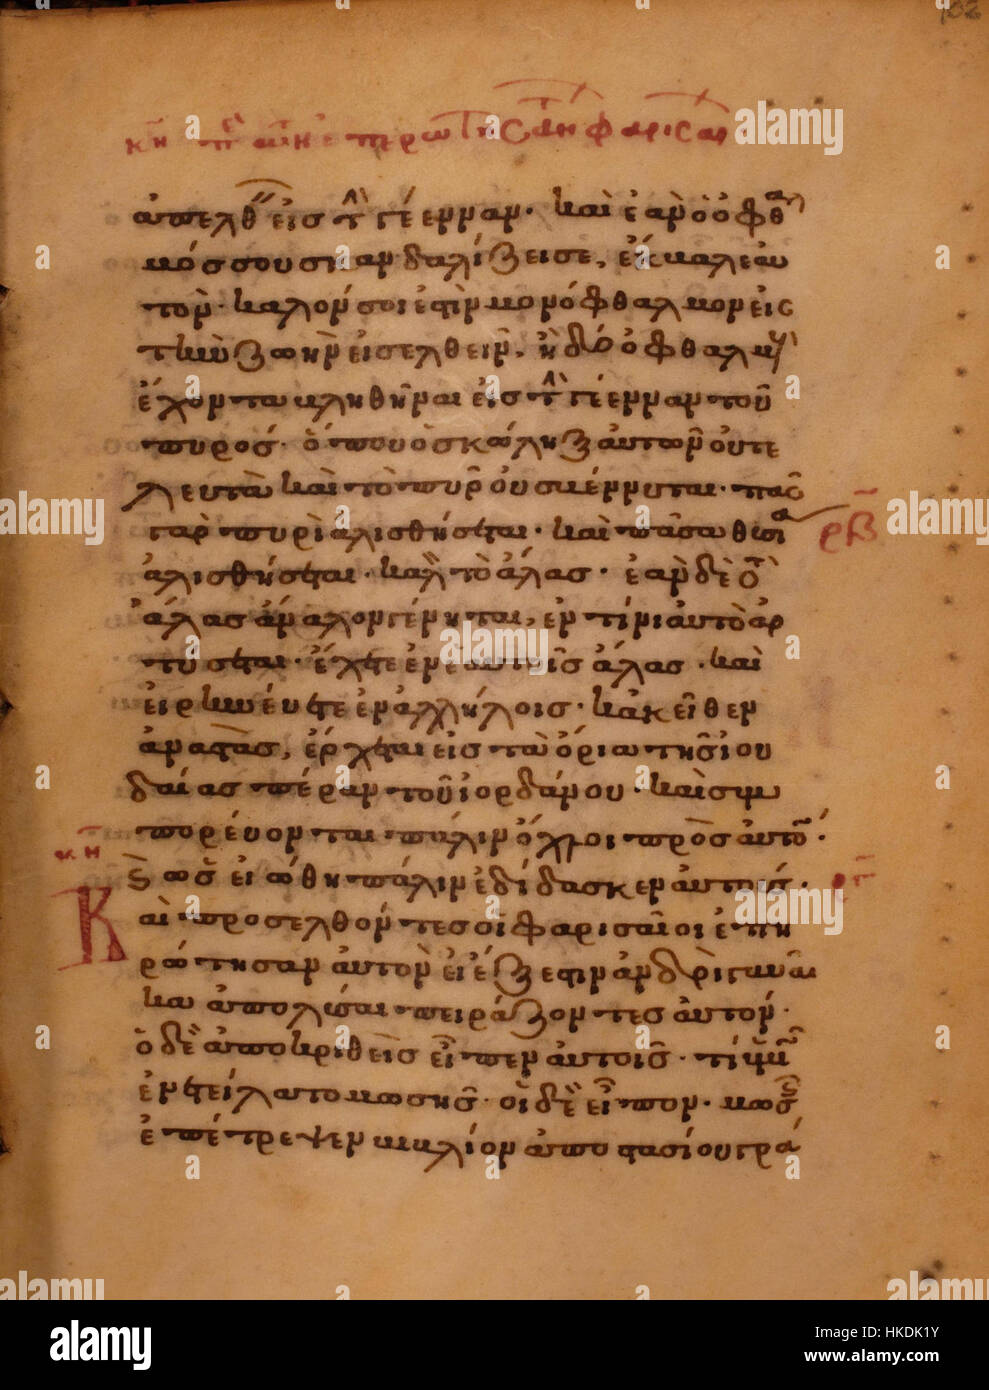 102
κη π ε αυτη επερωτησαντ φαρισαι
ἀπελθ εἰς τ γέενναν· καὶ ἐὰν ὁ ὀφθα
μός σου σκανδαλίζει σε, ἔκβαλε αὐ
τόν· καλόν σοι ἐστὶν μονόφθαλμον εἰς
τὴν ζωὴν εἰσελθεῖν, ἢ δύο ὀφθαλμ
ἔχοντα βληθῆναι εἰς τ γέενναν τοῦ
πυρός· ὅπου ὁ σκώληξ αὐτῶν οὐ τε
λευτᾶ καὶ τὸ πῦρ οὐ σβέννυται· πᾶς
γὰρ πυρὶ ἁλισθήσεται· καὶ πᾶσα θυσία
ρβ
ἁλισθήσεται· καλ τὸ ἅλας· ἐὰν δὲ τ
ἅλας ἄναλον γένηται, ἐν τίνι αὐτὸ ἀρ
τύσεται· ἔχετε ἐν ἑαυτοῖς ἅλας· καὶ
εἰρηνεύετε ἐν ἀλλήλοις· κἀκεῖθεν
ἀναστὰς, ἔρχεται εἰς τὰ ὅρια τῆς ἰου
δαίας πέραν τοῦ ἰορδάνου· καὶ συμ
πορεύονται πάλιν ὄχλοι πρὸς αὐτό·
κη
ϗ ὡς εἰώθη πάλιν ἐδίδασκεν αὐτούς·
Καὶ προσελθόντες οἱ φαρισαῖοι ἐπη
ρώτησαν αὐτὸν εἰ ἔξεστιν ἀνδρὶ γυναῖ
κα ἀπολῦσαι πειράζοντες αὐτόν·
ὁ δὲ ἀποκριθεὶς εἶπεν αὐτοῖς· τί ὑμῖ
ἐνετείλατο μωσῆς· οἱ δὲ εἶπον· μωσ
ἐπέτρεψεν βιβλίον ἀποστασίου γρά
alamy
Image ID: HKDK1Y
www.alamy.com